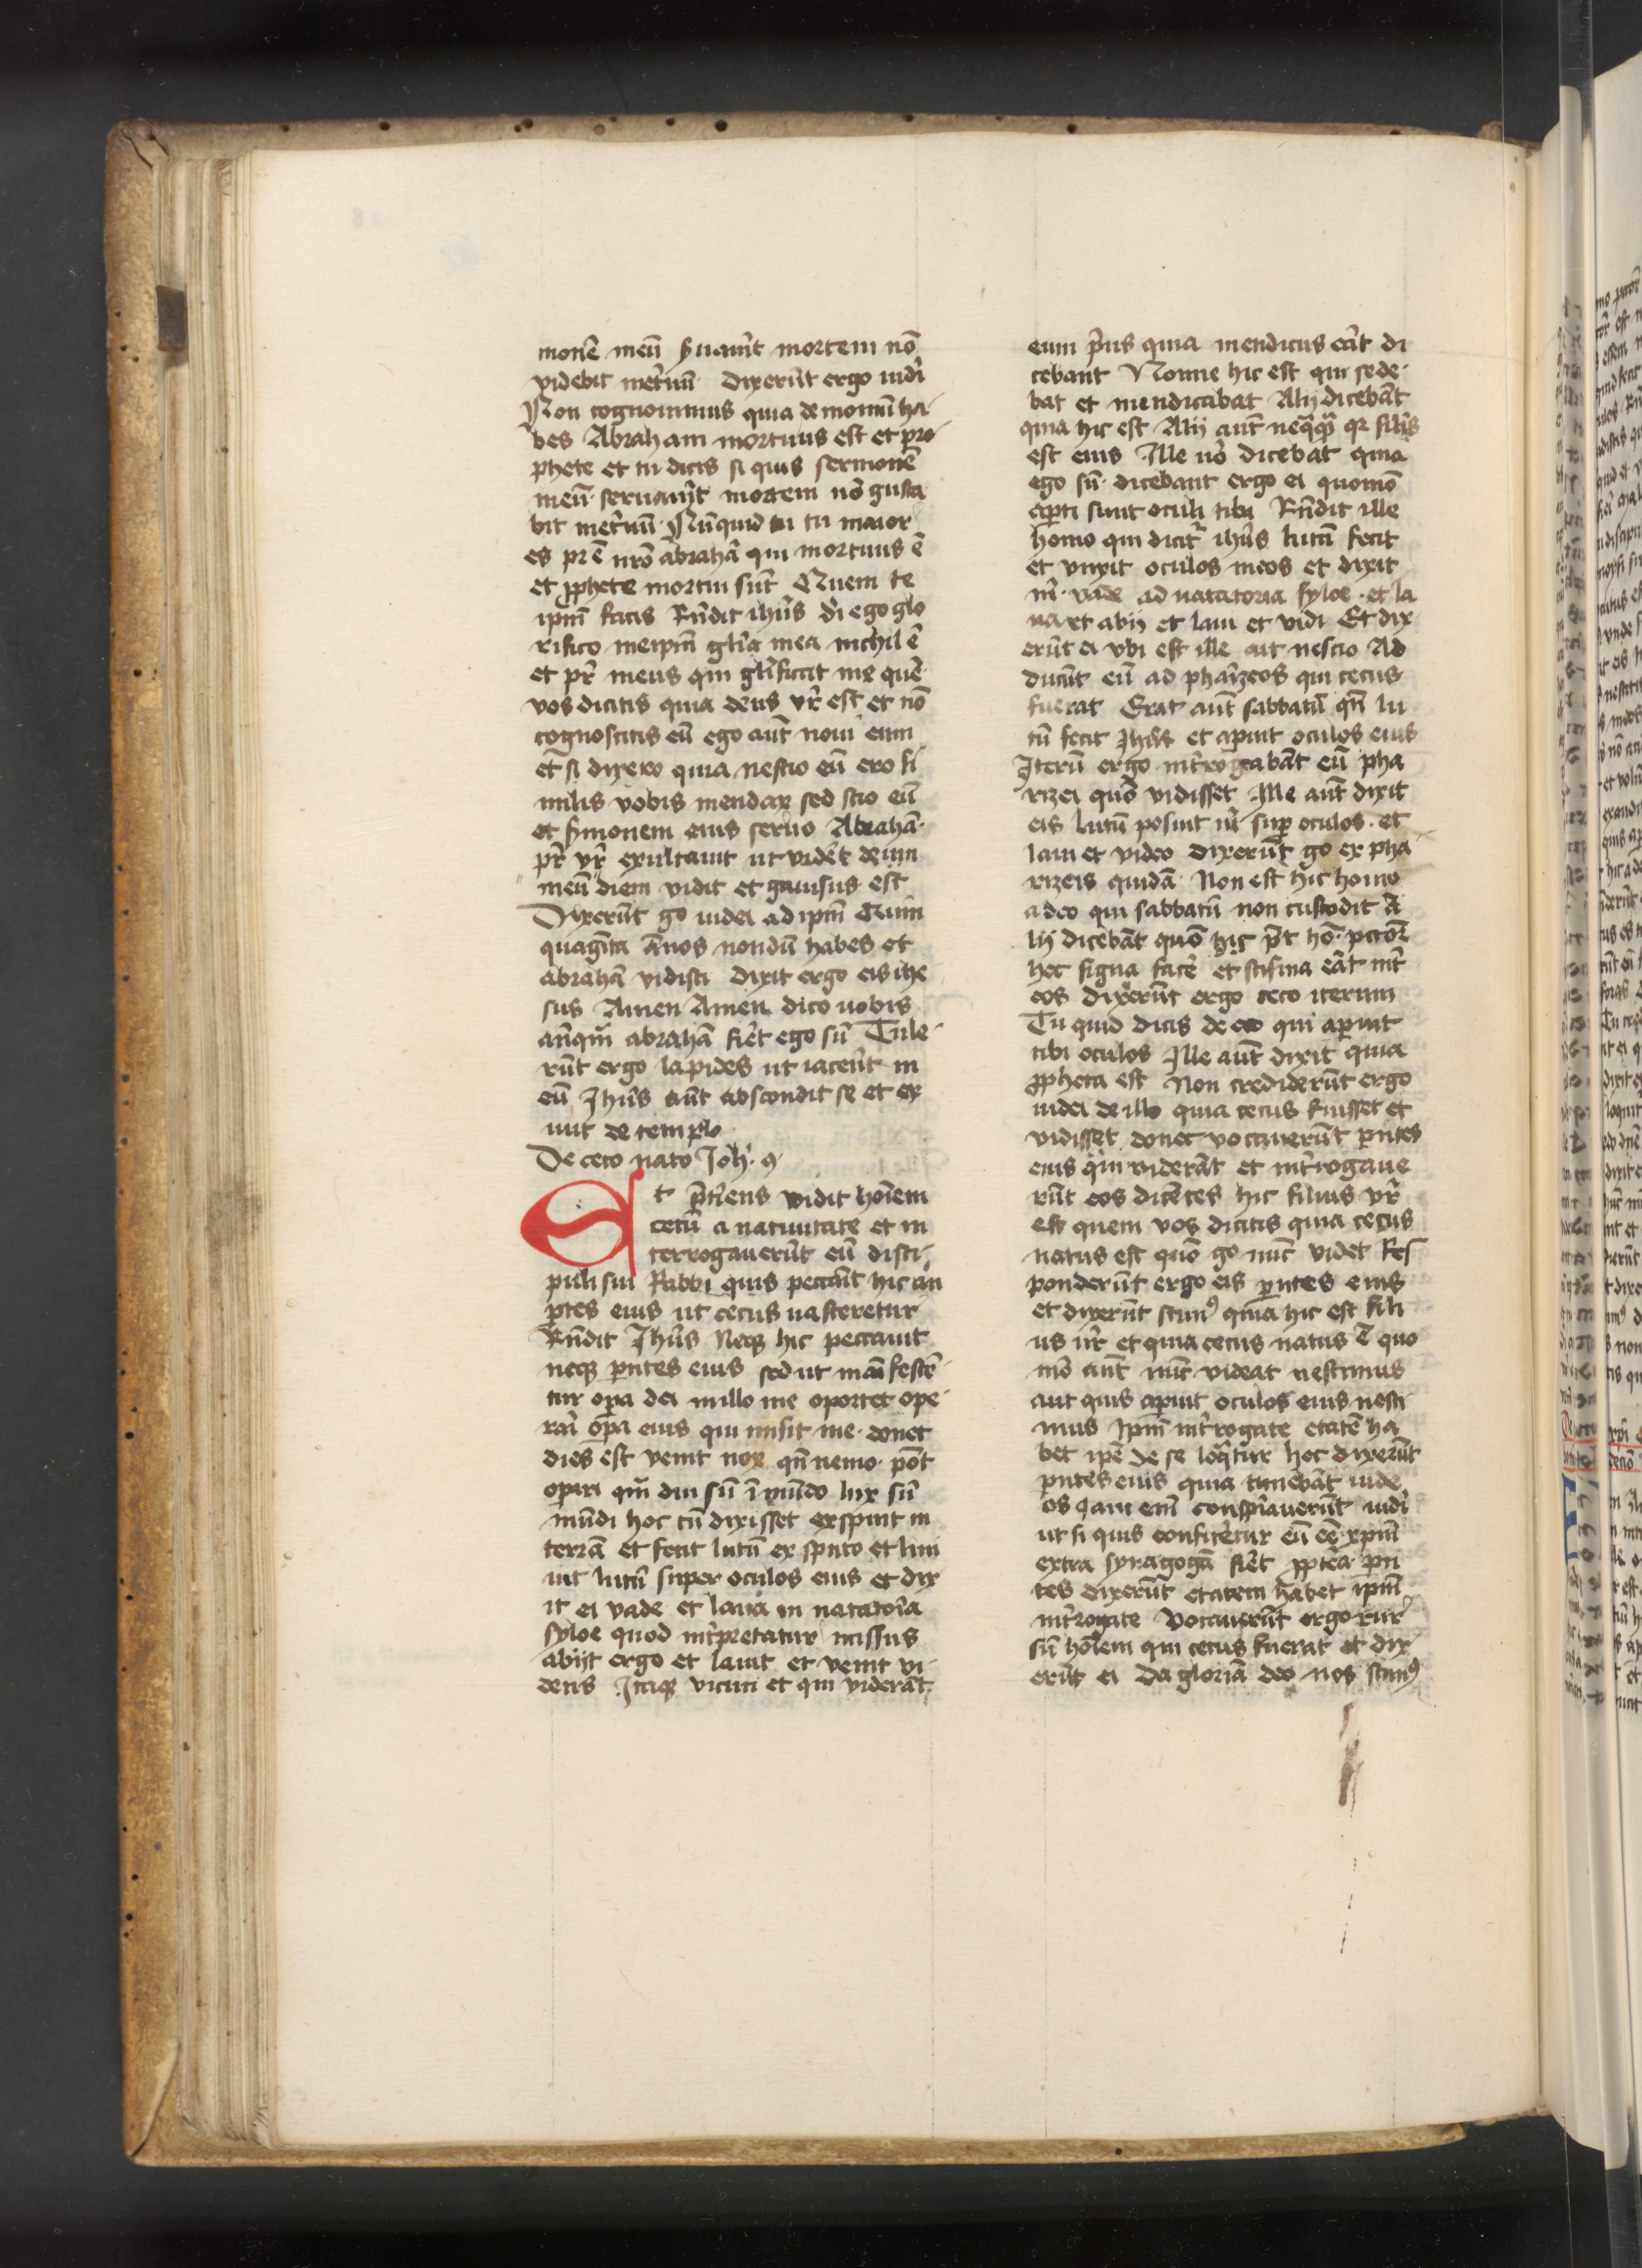 monē meū ẜuau̓it mortem nō
videbit met̓nū dixerūt ergo iudi̓
Non cognouimus quia demoniū ha
bes Abraham mortuus est et pro
phete et tu dicis si quis sermonē
meū seruau̓it mortem nō gusta
bit met̓nū Nūquid tu maior
es pr̄e nr̄o abrahā qui mortuus ē
et ꝓphete mortui sūt Quem te
ipm̄ facis Rn̄dit ih̄us si̓ ego glo
rifico meipm̄ gl̄ia mea nichil ē
et pr̄ meus qui gl̄ificat me quē
vos dicitis quia deus vr̄ est et nō
cognoscitis eū ego aūt noui eum
et si dixero quia nescio eū ero si
milis vobis mendax sed scio eū
et ẜmonem eius seruo Abrahā
pr̄ vr̄ exultauit ut vidēt deum
meū diem vidit et gauisus est
Dixerūt go iudei ad ipm̄ Quin
quagīta Ānos nondū habes et
abrahā vidisti dixit ergo eis ihe
sus Amen Amen dico uobis
an̄qm̄ abrahā fiēt ego sū Tule
rūt ergo lapides ut iacēnt in
eū Jhūs aūt abscondit se et ex
iuit de templo
De ceco nato Joh̓ 9
Et p̄tiens vidit hoīem
cecū a natiuitate et in
terrogauerūt eū disci
puli sui Rabbi quis peccāit hic an̄
ꝑtes eius ut cecus nasceretur
Rn̄dit Jhūs Neqꝫ hic peccauit
neqꝫ ꝑntes eius sed ut manifestē
tur oꝑa dei in illo me oportet ope
rari oꝑa eius qui misit me donec
dies est venit nox qn̄ nemo pōt
oꝑari qm̄ diu sū ī mūdo lux sū
mūdi hoc cū dixisset expuit in
terrā et fecit lutū ex sputo et lini
uit lutū super oculos eius et dix
it ei vade et laua in natatoīa
syloe quod int̓pretatur missus
abijt ergo et lauit et venit vi
dens Itaqꝫ vicini et qui viderāt
eum p̓us quia mendicus eāt di
cebant Nonne hic est qui sede
bat et mendicabat Alij dicebāt
quia hic est Alij aūt neq̄qꝫ qꝫ sil̄is
est eius Ille u̓o dicebat quia
ego sū dicebant ergo ei quomō
aꝑti sunt oculi tibi Rn̄dit ille
homo qui dicit̓ ihūs lutū fecit
et vnxit oculos meos et dixit
m̓ vade ad natatoria syloe et la
ua et abij et laui et vidi Et dix
erūt ei vbi est ille ait nescio Ad
ducūt eū ad phar̓zeos qui cecus
fuerat Erat aūt sabbatū qn̄ lu
tū fecit Jhūs et aꝑuit oculos eius
Iterū ergo int̓rogabāt eū pha
rizei quō vidisset Ille aūt dixit
eis lutū posuit m̓ suꝑ oculos et
laui et video dixerūt go ex pha
rizeis quidā Non est hic homo
a deo qui sabbatū non custodit A
lij dicebāt quō hic p̄t hō pctōr
hec signa facē et scisma eāt int̓
eos dixerūt ergo ceco iterum
Tu quid dicis de eo qui aꝑuit
tibi oculos Ille aūt dixit quia
ꝓpheta est Non crediderūt ergo
iudei de illo quia cecus fuisset et
vidisset donec vocauerūt ꝑntes
eius qui viderāt et int̓rogaue
rūt eos dicētes hic filius vr̄
est quem vos dicitis quia cecus
natus est quō go nūc videt Res
ponderūt ergo eis ꝑntes eius
et dixerūt scimꝰ quia hic est fili
us nr̄ et quia cecus natus ē quo
mō aūt nūc videat nescimus
aut quis aꝑuit oculos eius nesci
mus Ipm̄ int̓rogate etatē ha
bet ipē de se loq̄tur hec dixerūt
ꝑntes eius quia timebāt iude
os Jam enī conspi̓auerūt iudi̓
ut si quis confitētur eū eē xp̄m
extra synagogā fiēt ꝓptēa ꝑn
tes dixerūt etatem habet ipm̄
int̓rogate Vocauerūt ergo rur
sū hoīem qui cecus fuerat et dix
erūt ei Da gloriā deo nos scimꝰ